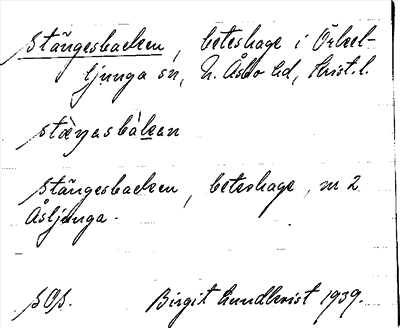 Stängesbacken, beteshage i Örkel-
ljunga sn, N. Åsbo hd, Krist. l.
stæŋasbàkan
Stängesbacken, beteshage, nr 2
Åsljunga.
SOS. Birgit Lundkvist 1939.